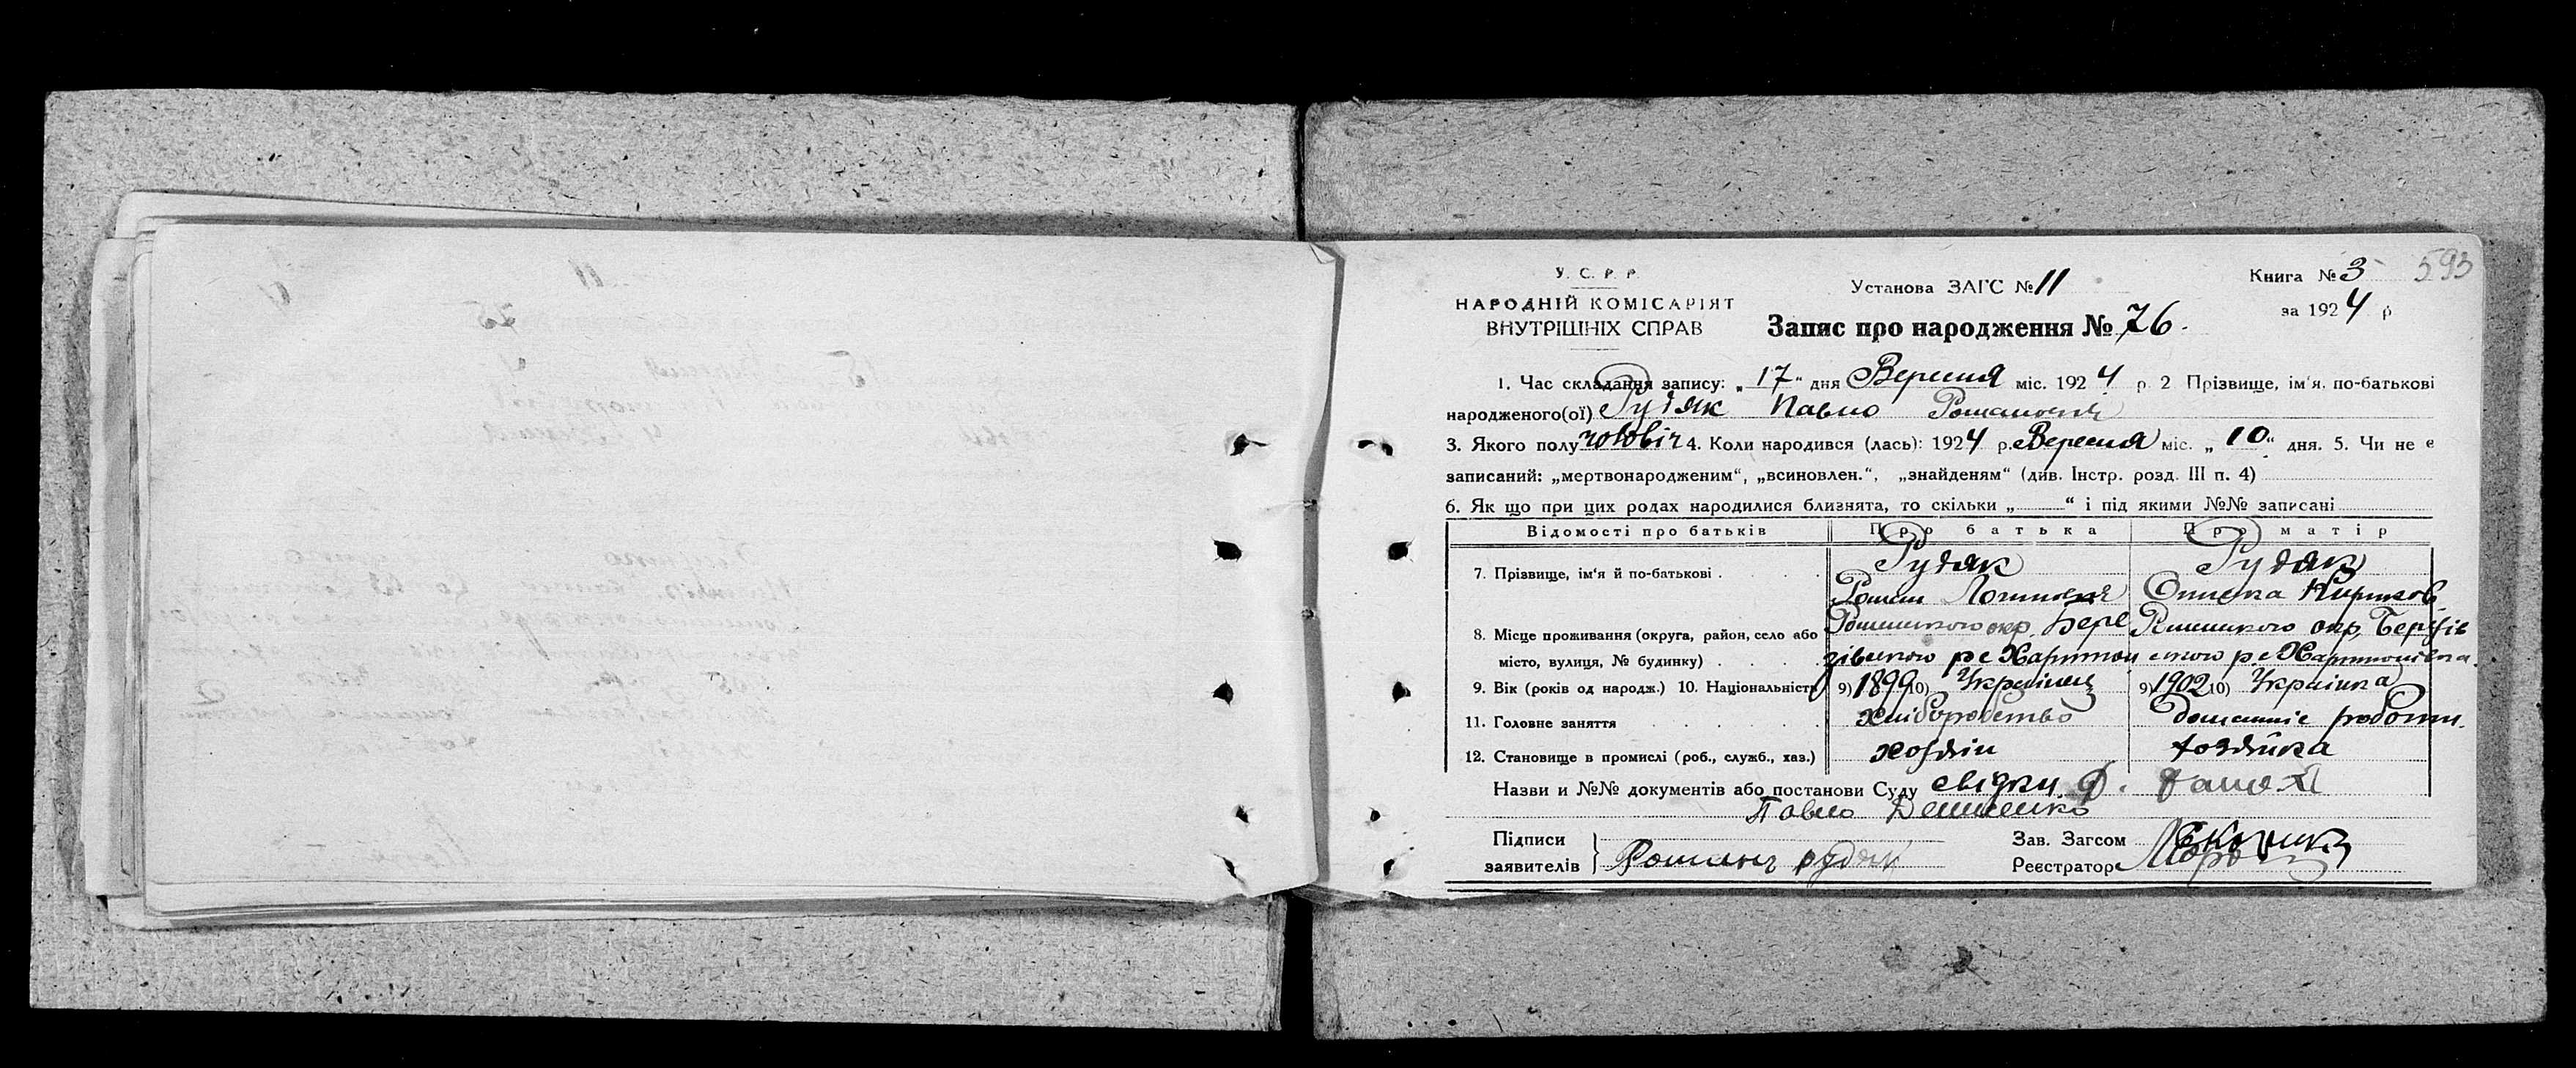 593
У. С. Р. Р.
НАРОДНІЙ КОМІСАРІЯТ
ВНУТРІШНІХ СПРАВ
Установа ЗАГС № 11
Книга № 3
за 1924 р
Запис про народження № 76.
1. Час складання запису: „17“ дня Вересня міс. 1924 р. 2 Прізвище, ім'я, по-батькові
народженого(ої) Рудяк Павло Романович
3. Якого полу чоловіч 4. Коли народився (лась): 1924 р. Вересня міс. „10“ дня. 5. Чи не є
записаний: „мертвонародженим“, „всиновлен.“, „знайденям“ (див. Інстр. розд. III п. 4)
6. Як що при цих родах народилися близнята, то скільки „ “ і під якими №№ записані
Відомості про батьків Про батька Про матір
7. Прізвище, ім'я й по-батькові . Рудяк Рудяк
Роман Логинович Ониска
8. Місце проживання (округа, район, село або Роменського окр. Бере Роменського окр. Берізів
місто, вулиця, № будинку) . зівського р с Харитон ського р. с Харитонівка.
9. Вік (років од народж.) 10. Національність 9) 1899 10) Українец 9) 1902 10) Українка
11. Головне заняття хліборобство домашніе роботи.
12. Становище в промислі (роб., служб., хаз.) хозяїн хозяйка
Назви и №№ документів або постанови Суду свідки Ф.
Павло Демиденко
Підписи
заявителів } Романъ рудяк
Зав. Загсом
Реєстратор